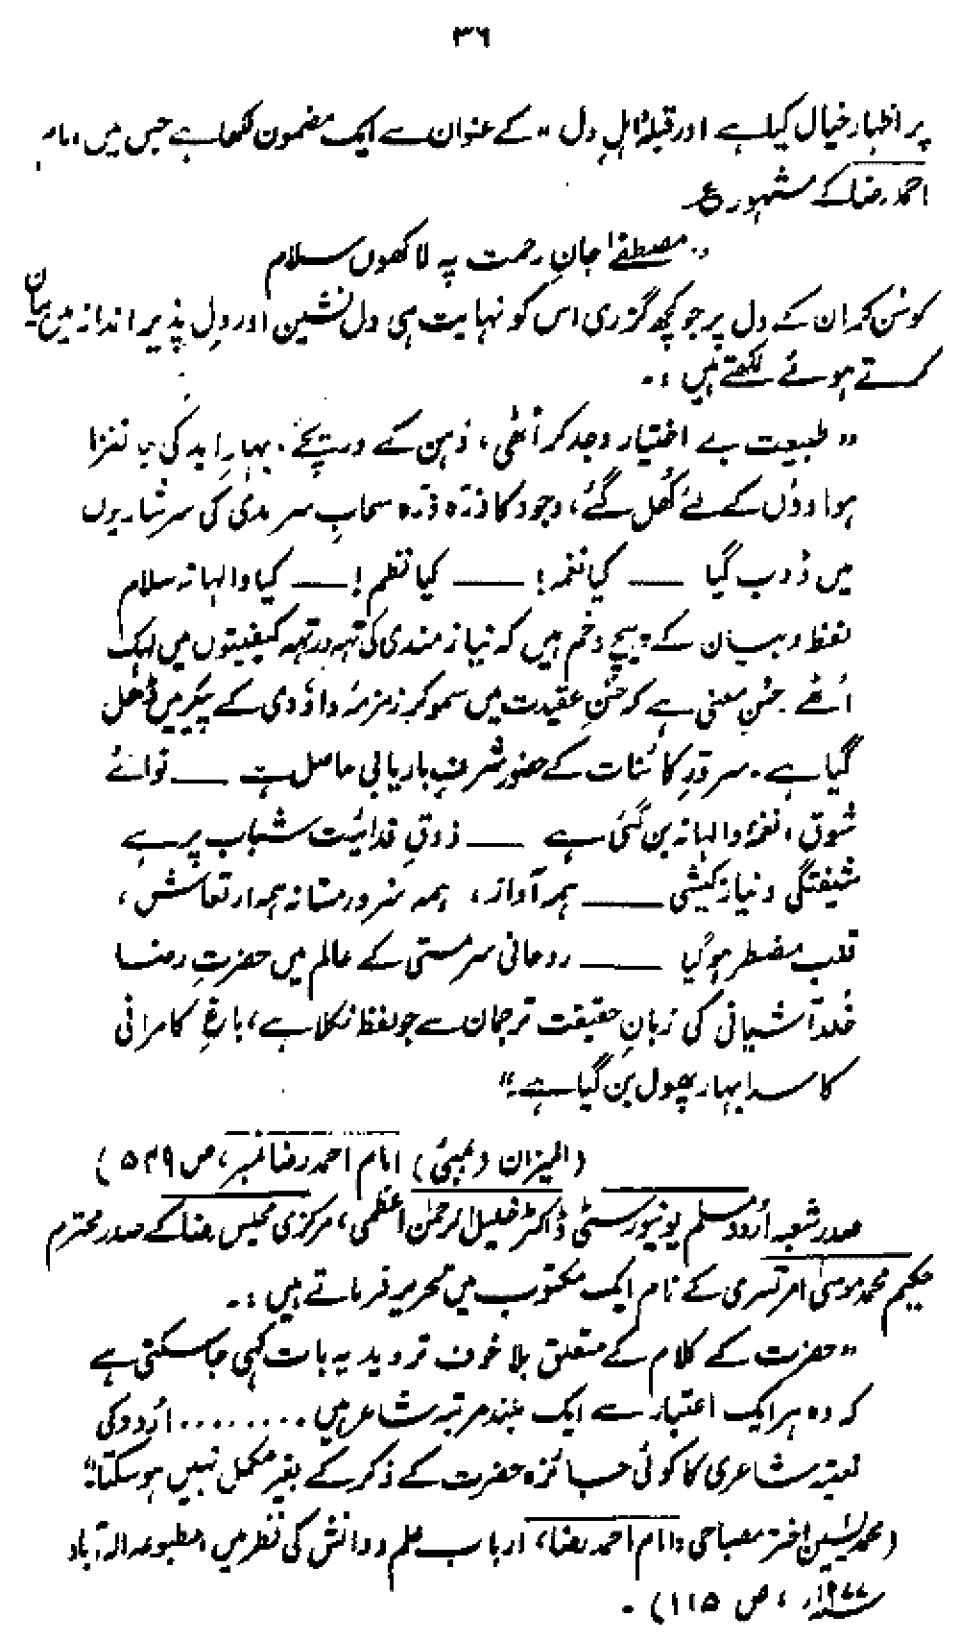 ۳۶
پر اظہار خیال کیا ہے اور قبلۂ اہلِ دل ،، کے عنوان سے ایک مضمون لکھا ہے جس میں امام
احمد رضا کے مشہور ع
،، مصطفےٰ جانِ رحمت پہ لاکھوں سلام
کو سُن کر ان کے دل پر جو کچھ گزری اس کو نہایت ہی دل نشین اور دل پذیر انداز میں بیان
کرتے ہوئے لکھتے ہیں :۔
،، طبیعت بے اختیار وجد کر اُٹھی ، ذہن کے دریچے ۔ بہارِ ابد کی جانفزا
ہواؤں کے لئے کُھل گئے ، وجود کا ذرّہ ذرّہ سحابِ سرمدی کی سرشاریوں
میں ڈوب گیا ــــ کیا نغمہ ! ــــ کیا نظم ! ــــ کیا والہانہ سلام
لفظ و بیان کے پیچ و خم ہیں کہ نیاز مندی کی تہہ در تہہ کیفیتوں میں لہک
اُٹھے جشنِ معنی ہے کہ حُسنِ عقیدت میں سمو کر زمزمۂ داؤدی کے پیکر میں ڈھل
گیا ہے ۔ سرورِ کائنات کے حضور شرفِ باریابی حاصل ہے ــــ نوائے
شوق ، نغمۂ والہانہ بن گئی ہے ــــ ذوقِ فدائیت شباب پر ہے
شیفتگی و نیاز کیشی ــــ ہمہ آواز ، ہمہ سُرور مستانہ ہمہ ارتعاش ،
قلب مضطر ہو گیا ــــ روحانی سرمستی کے عالم میں حضرتِ رضا
خُلد آشیانی کی زبانِ حقیقت ترجمان سے جو لفظ نکلا ہے ، باغِ کامرانی
کا سدا بہار پھول بن گیا ہے ۔"
(المیزان (بمبئی) امام احمد رضا نمبر ، ص ۵۴۹)
صدر شعبہ اُردو مسلم یونیورسٹی ڈاکٹر خلیل الرحمٰن اعظمی ، مرکزی مجلس رضا کے صدر محترم
حکیم محمد موسیٰ امرتسری کے نام ایک مکتوب میں تحریر فرماتے ہیں :۔
،، حضرت کے کلام کے متعلق بلا خوف تردید یہ بات کہی جا سکتی ہے
کہ وہ ہر ایک اعتبار سے ایک بلند مرتبہ شاعر ہیں ........ اُردو کی
نعتیہ شاعری کا کوئی جائزہ حضرت کے ذکر کے بغیر مکمل نہیں ہو سکتا "
(محمد یٰسین اختر مصباحی : امام احمد رضا ، ارباب علم و دانش کی نظر میں ، مطبوعہ الہ آباد
۱۹۷۷ء ، ص ۱۱۵) ۔